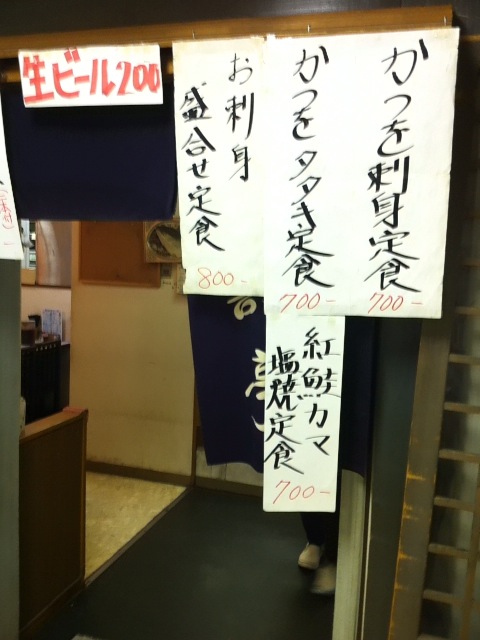 かつを刺身定食
700-
かつをタタキ定食
700-
お刺身
盛合せ定食
800-
紅鮭カマ
塩焼定食
700-
生ビール200